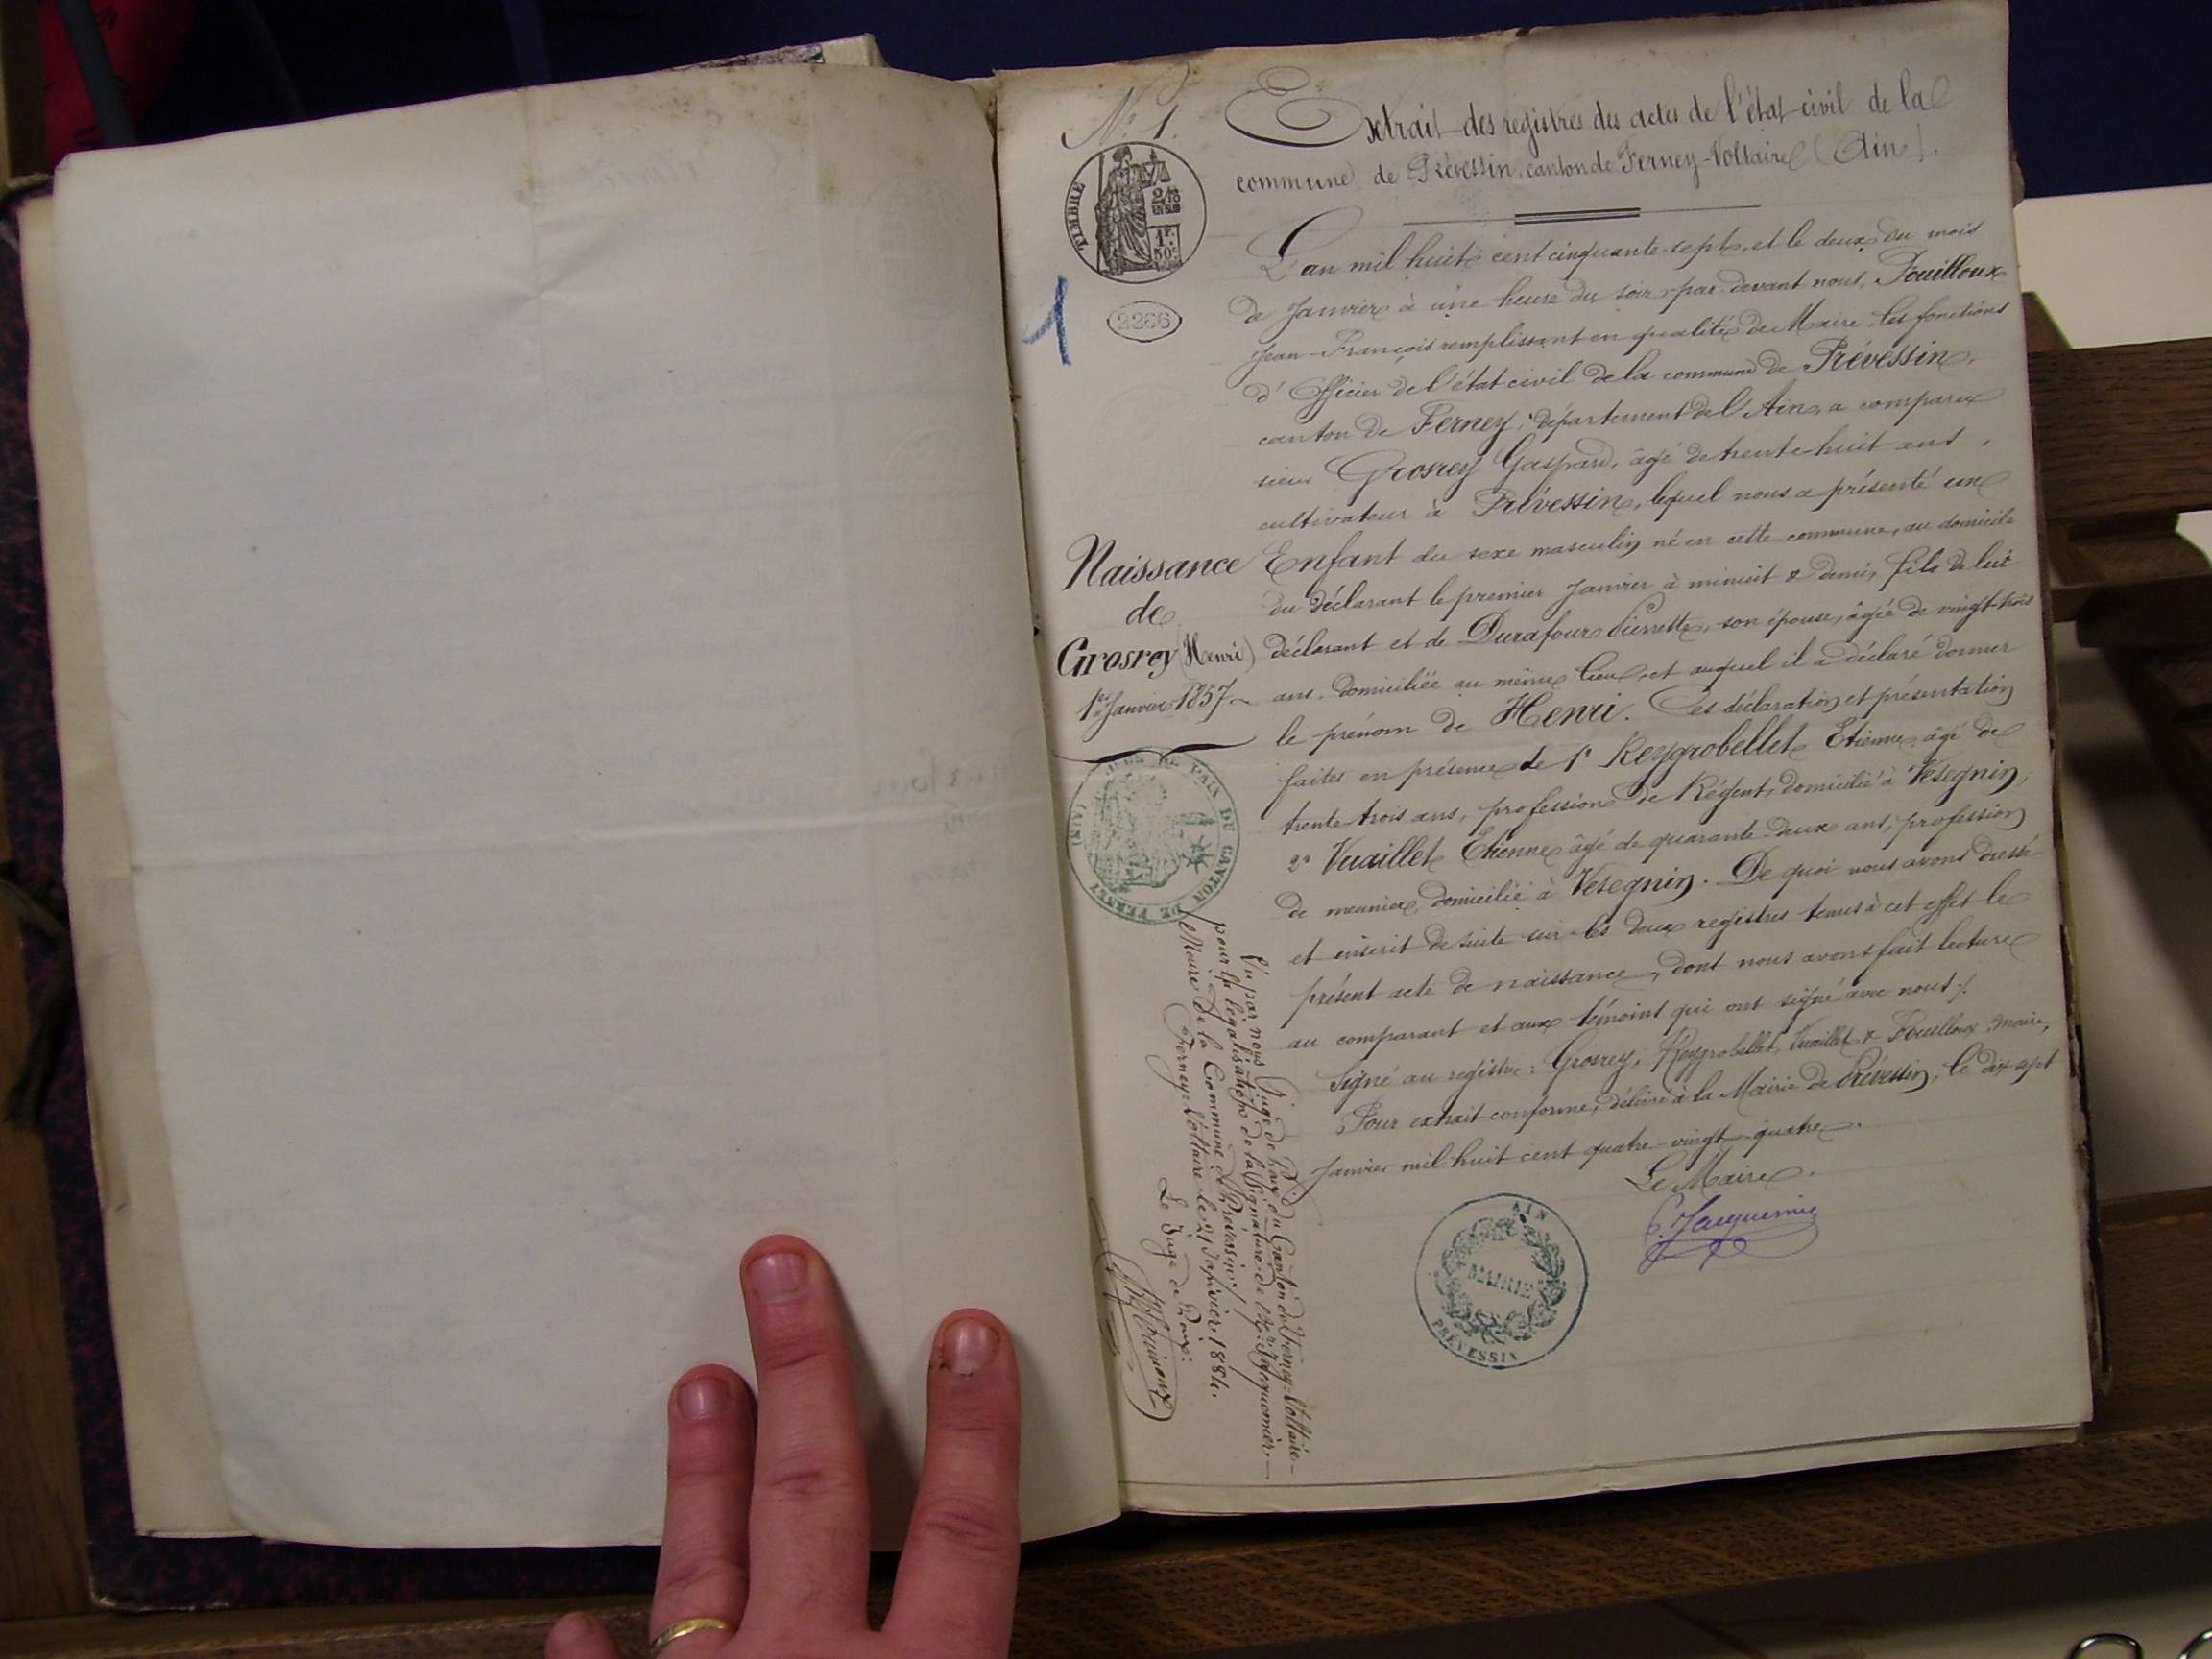 N° 1.
Extrait des registres des actes de l'état civil de la
commune de Prévessin, canton de Ferney-Voltaire (Ain).
TIMBRE
2/10
EN SUS
1F.
50c
2266
1
L'an mil huit cent cinquante-sept, et le deux du mois
de Janvier à une heure du soir, par devant nous, Fouilloux
Jean-François remplissant en qualité de Maire, les fonctions
d'Officier de l'état civil de la commune de Prévessin,
canton de Ferney, département de l'Ain, a comparu
sieur Grosrey Gaspard, âgé de trente huit ans,
cultivateur à Prévessin, lequel nous a présenté un
Enfant du sexe masculin né en cette commune, au domicile
du déclarant le premier Janvier à minuit & demi, fils de lui
déclarant et de Durafour Pierrette, son épouse, âgée de vingt-trois
ans, domiciliée au même lieu, et auquel il a déclaré donner
le prénom de Henri. Ces déclaration et présentation
faites en présence de 1° Reygrobellet Etienne, âgé de
trente-trois ans, profession de Régent, domicilié à Vesegnin,
2° Vuaillet Etienne âgé de quarante-deux ans, profession
de meunier, domicilié à Vesegnin. De quoi nous avons dressé
et inscrit de suite sur les deux registres tenus à cet effet le
présent acte de naissance, dont nous avons fait lecture
au comparant et aux témoins qui ont signé avec nous /.
Signé au registre : Grosrey, Reygrobellet, Vuaillet & Fouilloux maire,
Pour extrait conforme, délivré à la Mairie de Prévessin, le dix sept
Janvier mil huit cent quatre-vingt-quatre.
Le Maire.
Naissance
de
Grosrey (Henri)
1er Janvier 1857
JUGE DE PAIX DU CANTON DE FERNEY (AIN)
Vu par nous Juge de Paix du Canton de Ferney-Voltaire
pour la légalisation de la Signature de Mr. Jacquemier
Maire de la Commune de Prevessin /
Ferney-Voltaire le 21 Janvier 1884.
Le Juge de Paix:
AIN
MAIRIE
PRÉVESSIN